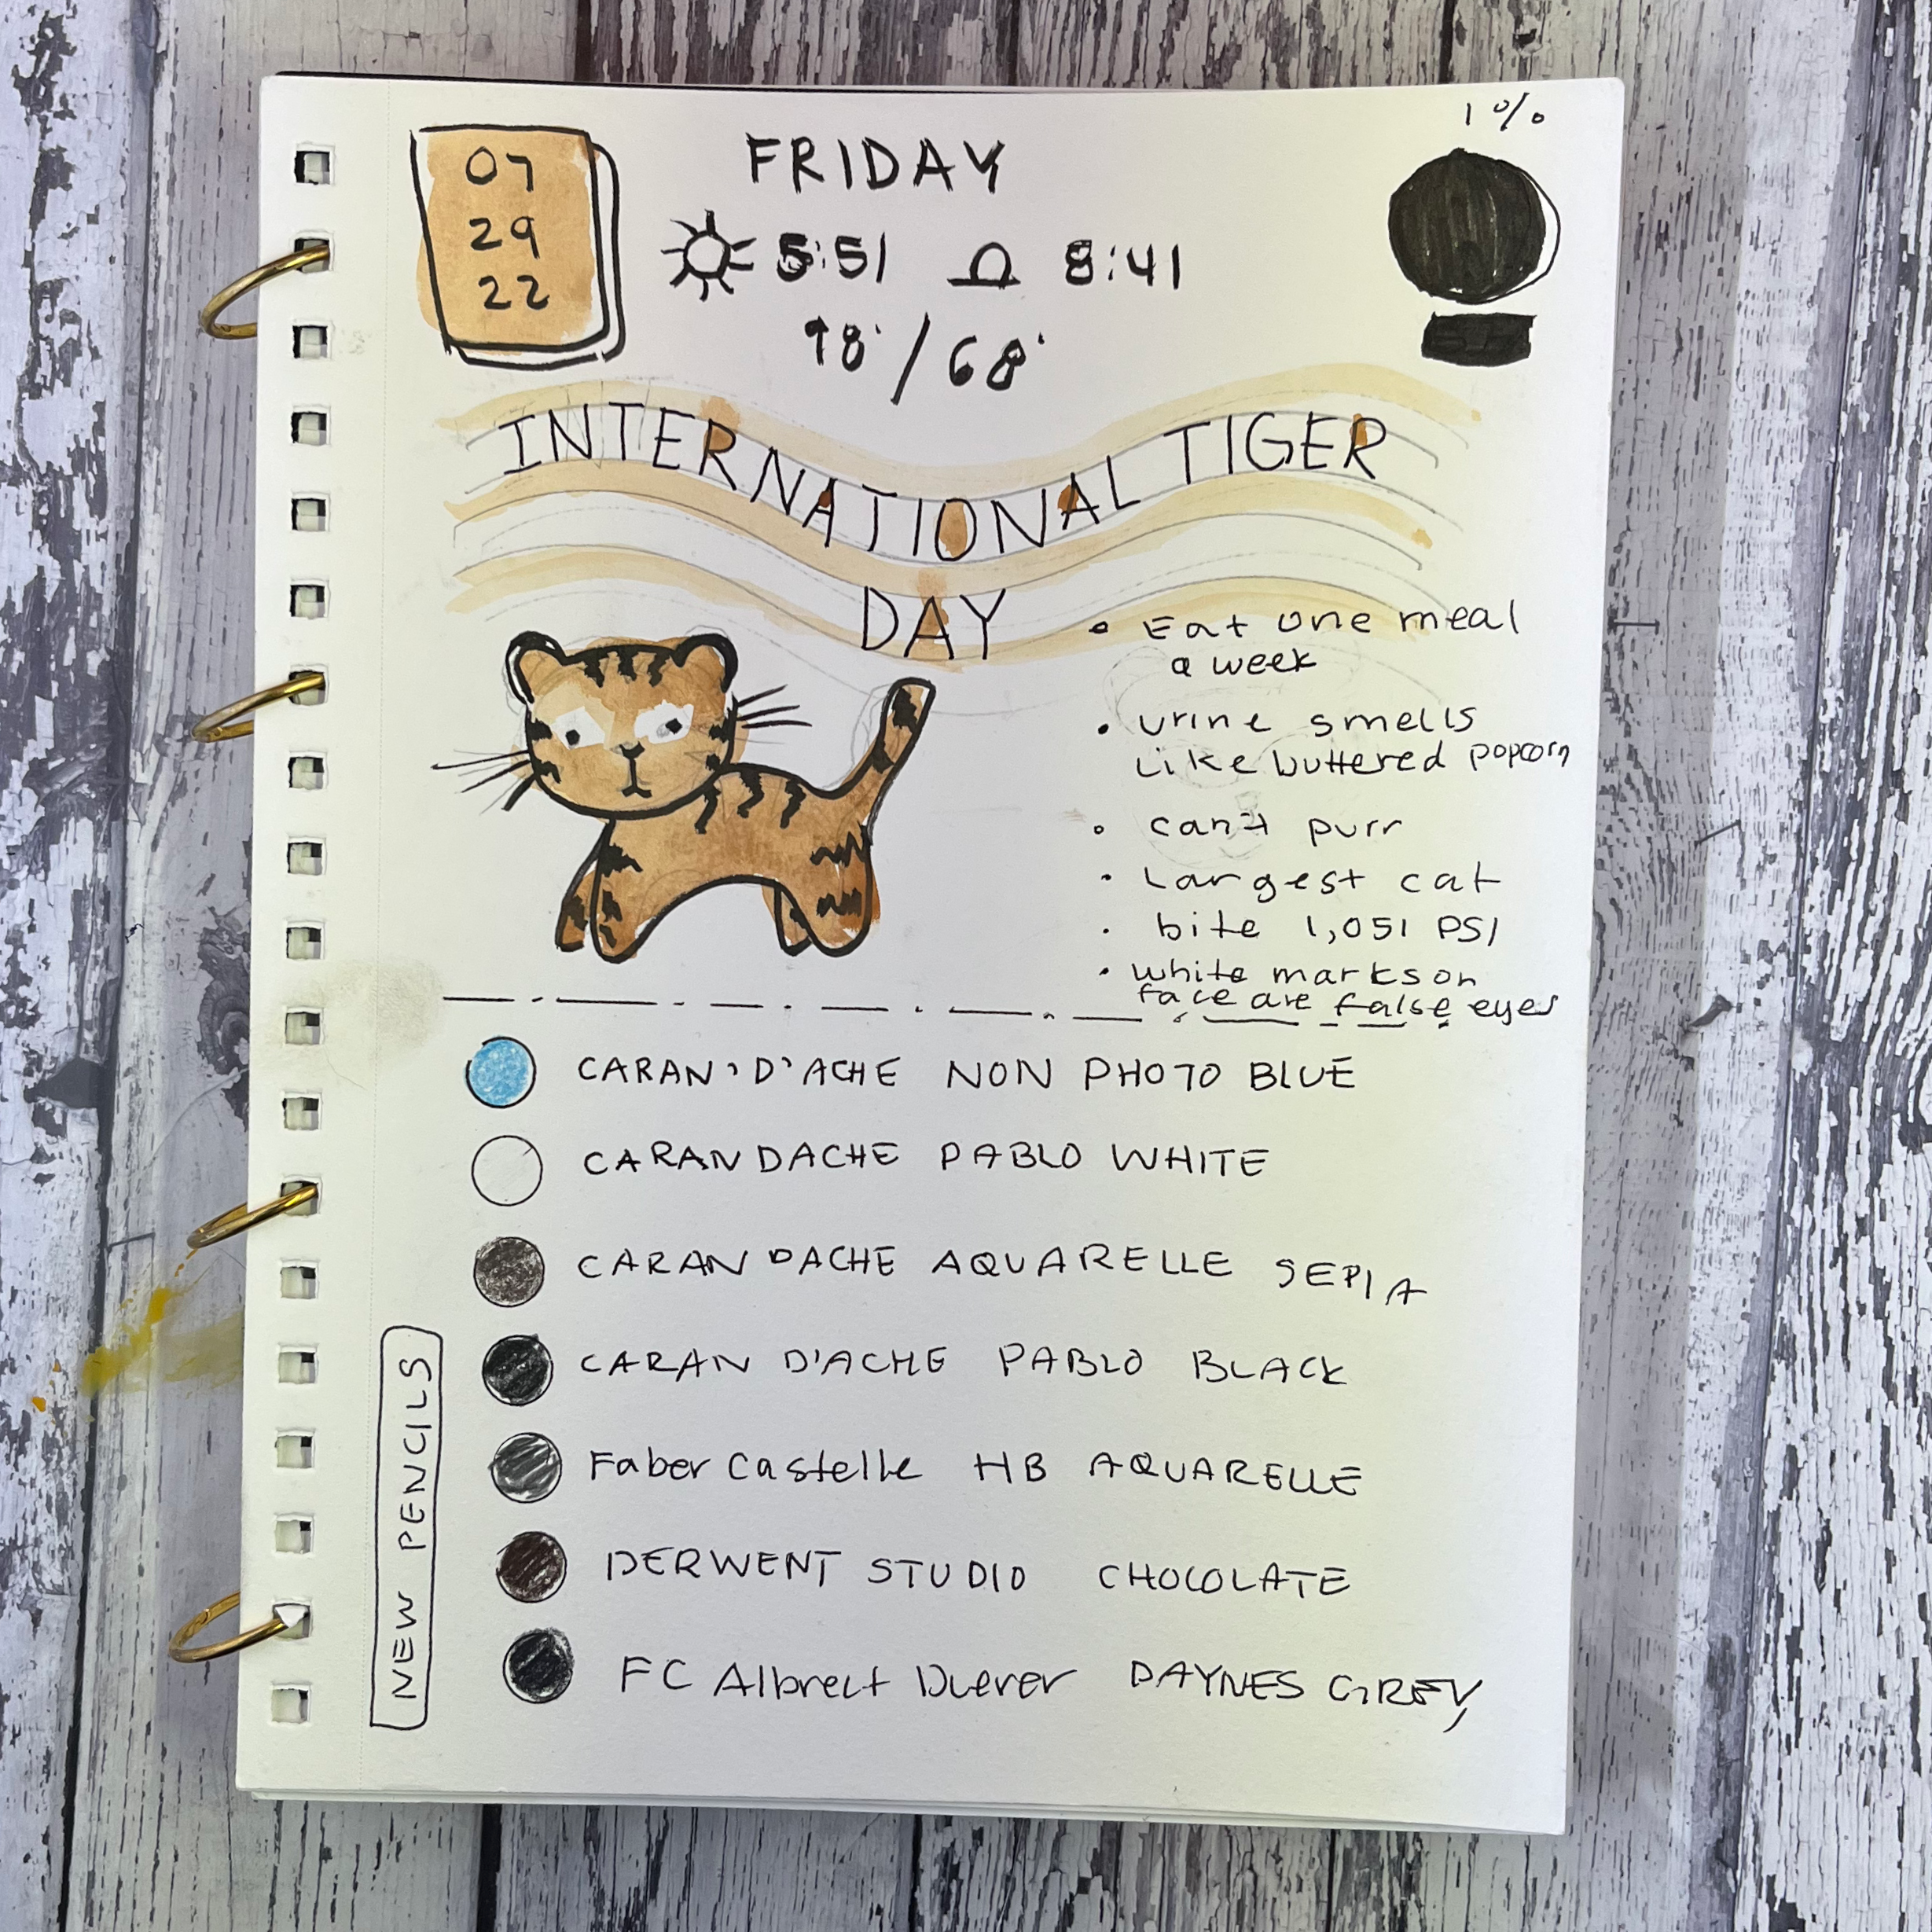 1%
07
29
22
FRIDAY
5:51 8:41
98°/68°
INTERNATIONAL TIGER
DAY
• Eat one meal
a week
• urine smells
like buttered popcorn
• can't purr
• Largest cat
• bite 1,051 PSI
• white marks on
face are false eyes
CARAN'D'ACHE NON PHOTO BLUE
CARAN DACHE PABLO WHITE
CARAN DACHE AQUARELLE SEPIA
CARAN D'ACHE PABLO BLACK
Faber Castelle HB AQUARELLE
DERWENT STUDIO CHOCOLATE
FC Albrect Duerer DAYNES GREY
NEW PENCILS